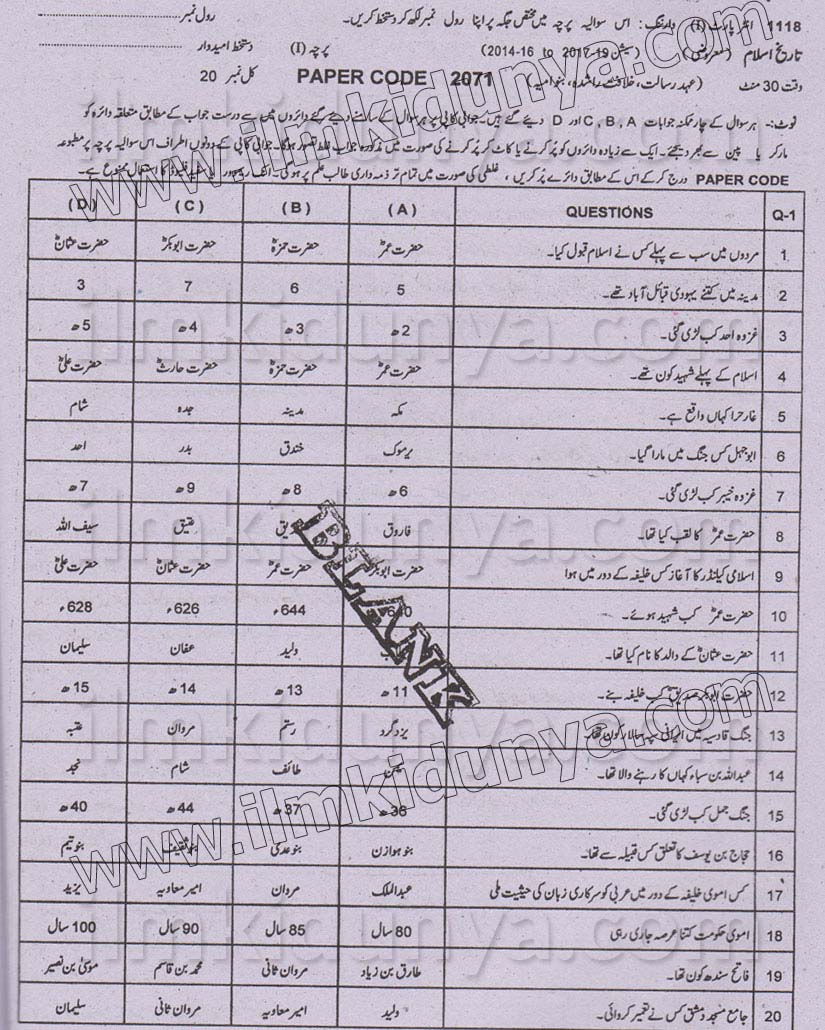 1118 انٹر پارٹ (I) وارننگ : اس سوالیہ پرچہ میں مختص جگہ پر اپنا رول نمبر لکھ کر دستخط کریں۔ رول نمبر
تاریخ اسلام (معروضی) (سیشن 19-2017 to 16-2014) پرچہ (I) دستخط امیدوار
وقت 30 منٹ (عہد رسالت، خلافت راشدہ، بنوامیہ) PAPER CODE 2071 کل نمبر 20
نوٹ:۔ ہر سوال کے چار ممکنہ جوابات C , B , A اور D دیئے گئے ہیں۔ جوابی کاپی پر ہر سوال کے سامنے دیئے گئے دائروں میں سے درست جواب کے مطابق متعلقہ دائرہ کو
مارکر یا پین سے بھر دیجئے۔ ایک سے زیادہ دائروں کو پُر کرنے یا کاٹ کر پُر کرنے کی صورت میں مذکورہ جواب غلط تصور ہوگا۔ جوابی کاپی کے دونوں اطراف اس سوالیہ پرچہ پر مطبوعہ
PAPER CODE درج کر کے اس کے مطابق دائرے پُر کریں ، غلطی کی صورت میں تمام تر ذمہ داری طالب علم پر ہوگی۔ انک ریموور یا سفید فلیوڈ کا استعمال ممنوع ہے۔
Q-1 QUESTIONS (A) (B) (C) (D)
1 مردوں میں سب سے پہلے کس نے اسلام قبول کیا۔ حضرت عمرؓ حضرت حمزہؓ حضرت ابوبکرؓ حضرت عثمانؓ
2 مدینہ میں کتنے یہودی قبائل آباد تھے۔ 5 6 7 3
3 غزوہ احد کب لڑی گئی۔ 2ھ 3ھ 4ھ 5ھ
4 اسلام کے پہلے شہید کون تھے۔ حضرت عمرؓ حضرت حمزہؓ حضرت حارثؓ حضرت علیؓ
5 غار حرا کہاں واقع ہے۔ مکہ مدینہ جدہ شام
6 ابوجہل کس جنگ میں مارا گیا۔ یرموک خندق بدر احد
7 غزوہ خیبر کب لڑی گئی۔ 6ھ 8ھ 9ھ 7ھ
8 حضرت عمرؓ کا لقب کیا تھا۔ فاروق عتیق سیف اللہ
9 اسلامی کیلنڈر کا آغاز کس خلیفہ کے دور میں ہوا حضرت ابوبکرؓ حضرت عمرؓ حضرت عثمانؓ حضرت علیؓ
10 حضرت عمرؓ کب شہید ہوئے۔ 640ء 644ء 626ء 628ء
11 حضرت عثمانؓ کے والد کا نام کیا تھا۔ ولید عفان سلیمان
12 حضرت ابوبکر صدیقؓ کب خلیفہ بنے۔ 11ھ 13ھ 14ھ 15ھ
13 جنگ قادسیہ میں ایرانی سپہ سالار کون تھا۔ یزدگرد رستم مردان عتبہ
14 عبداللہ بن سباء کہاں کا رہنے والا تھا۔ طائف شام نجد
15 جنگ جمل کب لڑی گئی۔ 36ھ 37ھ 44ھ 40ھ
16 حجاج بن یوسف کا تعلق کس قبیلہ سے تھا۔ بنو ہوازن بنو عدی بنو ثقیف بنو تیم
17 کس اموی خلیفہ کے دور میں عربی کو سرکاری زبان کی حیثیت ملی عبدالملک مردان امیر معاویہ یزید
18 اموی حکومت کتنا عرصہ جاری رہی 80 سال 85 سال 90 سال 100 سال
19 فاتح سندھ کون تھا۔ طارق بن زیاد مروان ثانی محمد بن قاسم موسیٰ بن نصیر
20 جامع مسجد دمشق کس نے تعمیر کروائی۔ ولید امیر معاویہ مروان ثانی سلیمان
BLANK
www.ilmkidunya.com
www.ilmkidunya.com
ilmkidunya.com
ilmkidunya.com
ilmkidunya.com
ilmkidunya.com
ilmkidunya.com